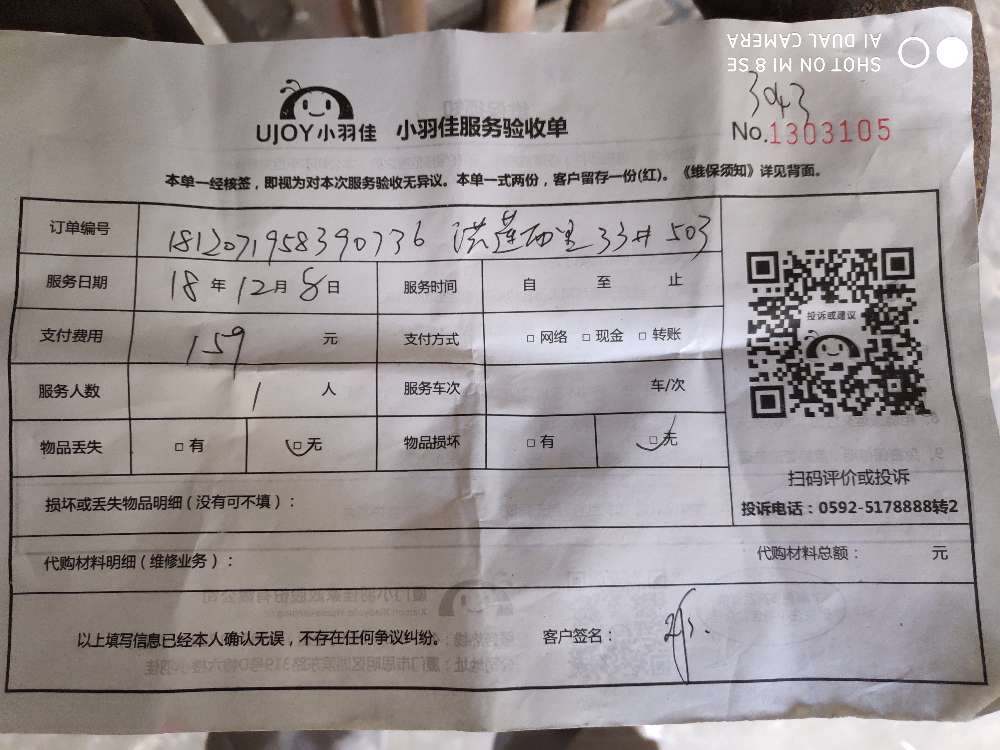 SHOT ON MI 8 SE
AI DUAL CAMERA
3043
UJOY小羽佳 小羽佳服务验收单
No.1303105
本单一经核签，即视为对本次服务验收无异议。本单一式两份，客户留存一份(红)。《维保须知》详见背面。
订单编号 1812071958390736 洪莲西里33# 503
服务日期 18年12月8日 服务时间 自 至 止
支付费用 159 元 支付方式 □网络 □现金 □转账
服务人数 1 人 服务车次 车/次
物品丢失 □有 □无 物品损坏 □有 □无
投诉或建议
扫码评价或投诉
投诉电话：0592-5178888转2
损坏或丢失物品明细（没有可不填）：
代购材料明细（维修业务）： 代购材料总额： 元
以上填写信息已经本人确认无误，不存在任何争议纠纷。 客户签名：